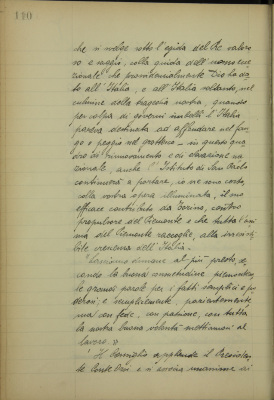 110
che si svolse sotto l'egida del Re valoro
so e saggio, colla guida dell'uomo ecce
zionale che provvidenzialmente Dio ha da
to all'Italia, e all'Italia soldando, nel
culmine della tragedia nostra, quando
per colpa di governi imbelli l'Italia
pareva destinata ad affondare nel fan
go o peggio nel grottesco - in questa ope
ra di rinnovamento e di elevazione na
zionale, anche l'Istituto di San Paolo
continuerà a portare, io ne son certo,
colla vostra opera illuminata, il suo
efficace contributo da Torino, centro
propulsore del Piemonte e che tutta l'ani
ma del Piemonte raccoglie, alla
ascesa dell'Italia.
Lasciamo dunque al più presto, se
condo la buona consuetudine piemontese,
le grandi parole per i fatti semplici e po
derosi; e semplicemente, pazientemente,
ma con fede, con passione, con tutta
la nostra buona volontà mettiamoci al
lavoro. »
Il Consiglio applaude il Presiden
te e si associa unanime ai